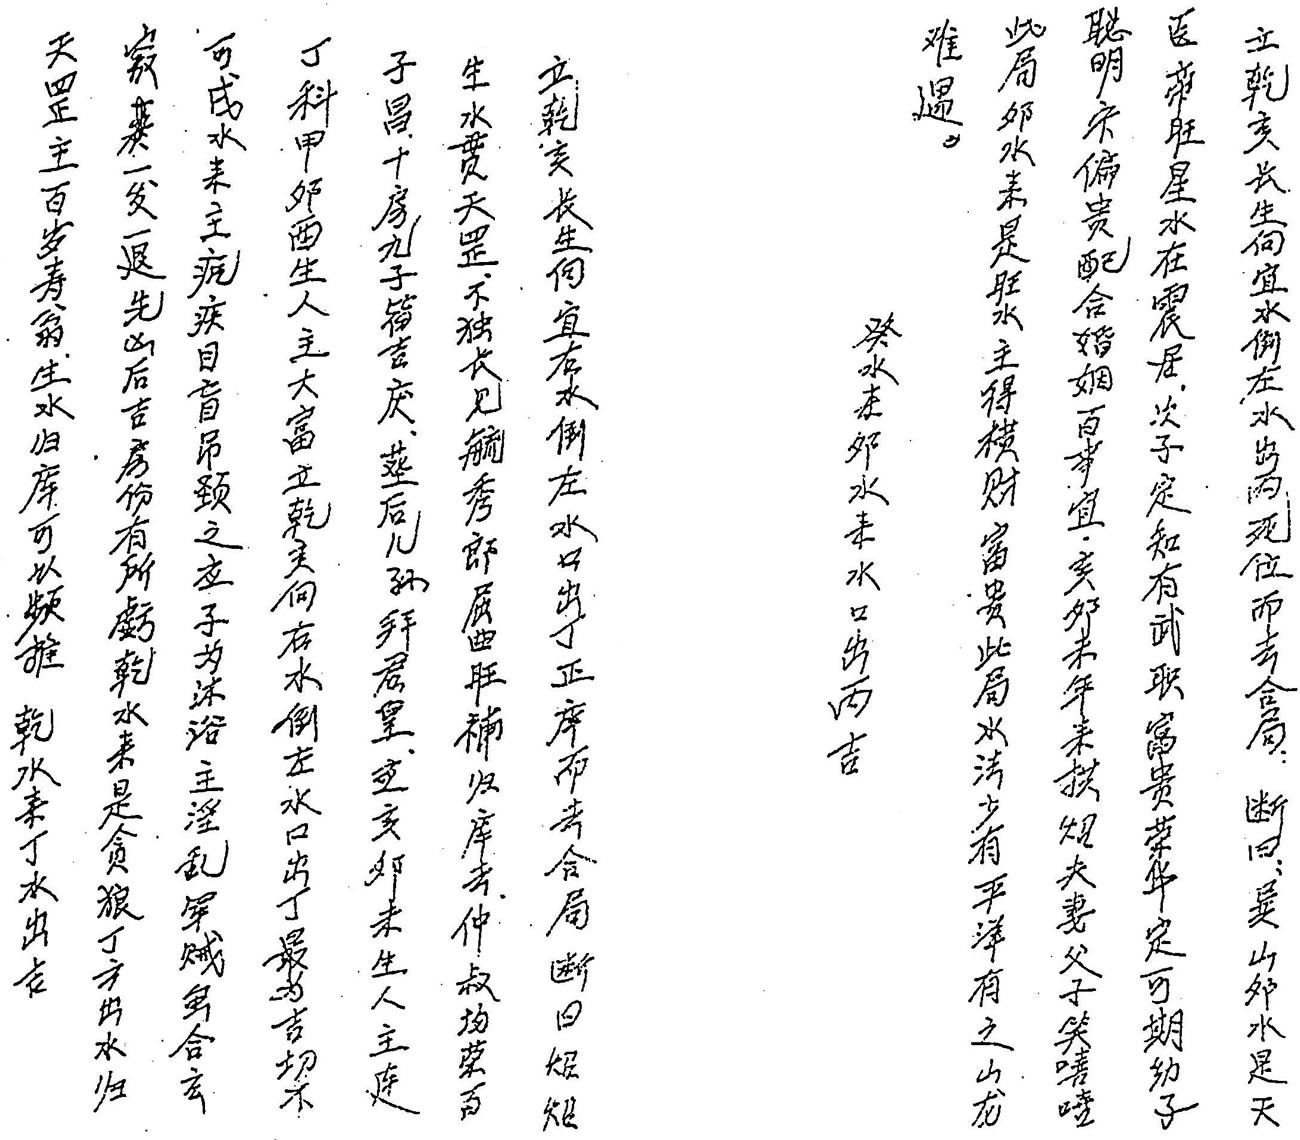 立乾亥长生向宜水倒左水出丙死位而去合局：断曰：巽山卯水是天
医帝旺星水在震居、次子定知有武职富贵荣华定可期幼子
聪明宋偏贵配合婚姻百事宜·亥卯未年来拱照夫妻父子笑嘻嘻
此局卯水来是旺水主得横财富贵此局水法少有平洋有之山龙
难遇。
癸水来卯水来水口出丙吉
立乾亥长生向宜右水倒左水口出丁正库而去合局断曰
生水贯天罡、不独长儿毓秀郎屈曲旺補归库去、仲叔均荣百
子昌、十房九子皆吉庆、葬后儿孙拜君皇、更亥卯未生人主连
丁科甲卯酉生人主大富立乾亥向右水倒左水口出丁最为吉切不
可戌水来主疯疾目盲吊颈之应子为沐浴主淫乱军贼军合玄
窍葬一发一退先凶后吉房份有所虧乾水来是贪狼丁方出水归
天罡主百岁寿翁、生水归库可以频推 乾水来丁水出吉